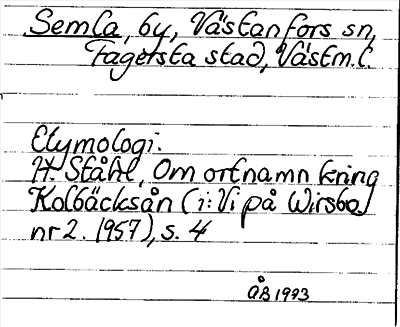 Semla, by, Västanfors sn,
Fagersta stad, Västm.l.
Etymologi:
H. Ståhl, Om ortnamn kring
Kolbäcksån (i: Vi på Wirsbo
nr 2. 1957), s. 4
ÅB 1993